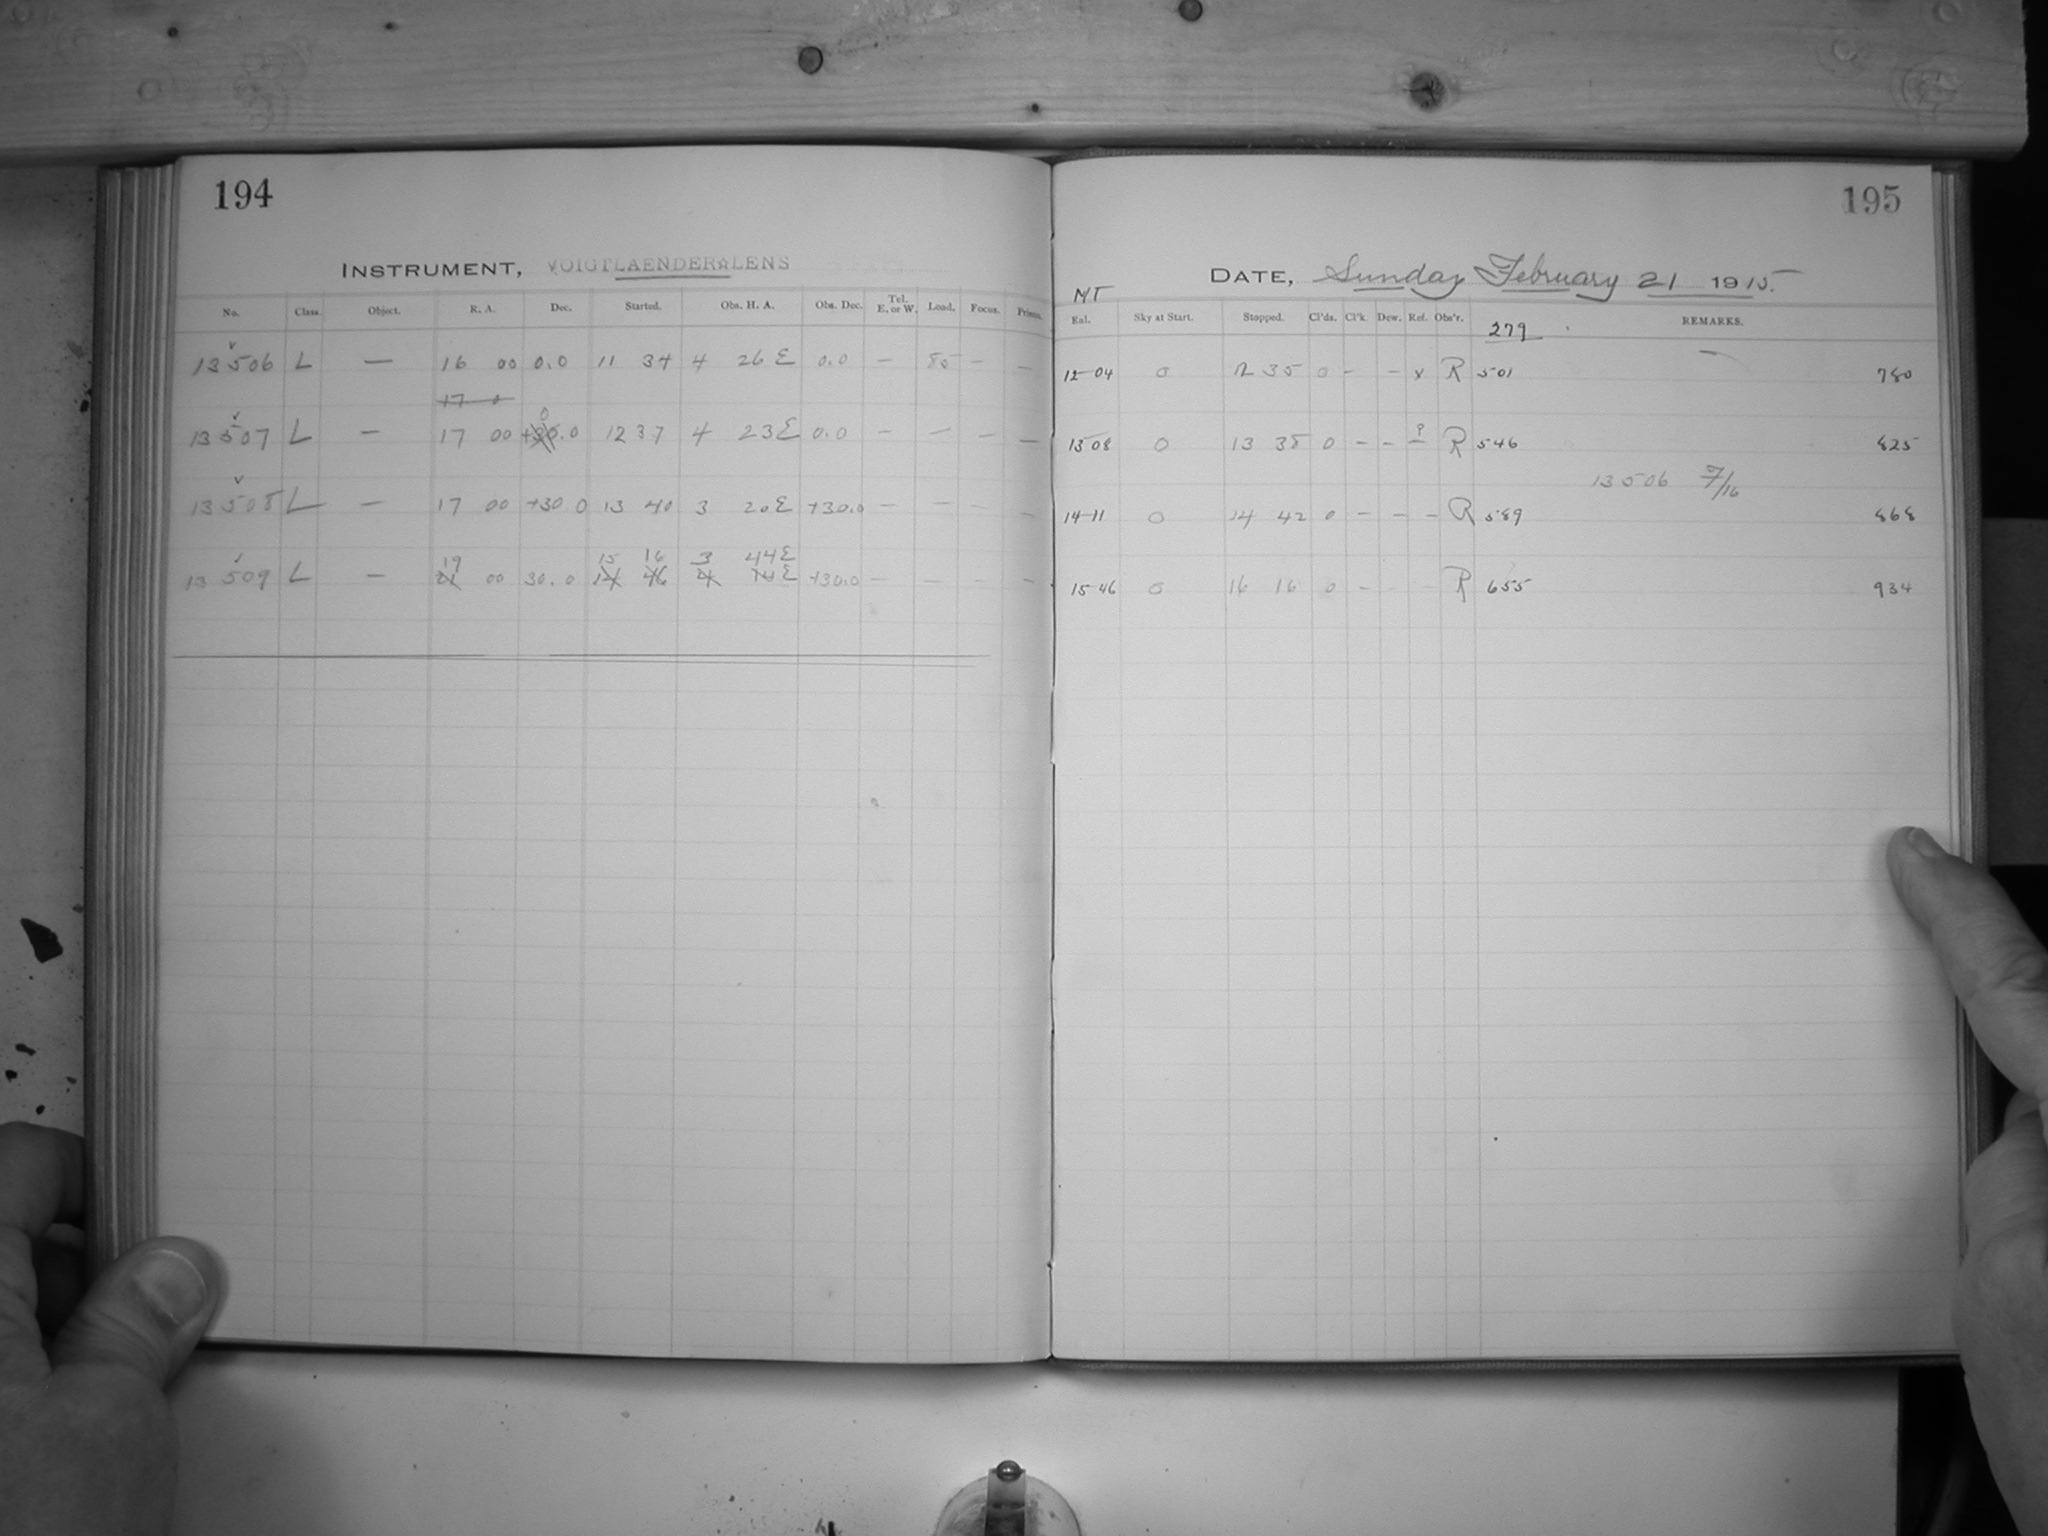 194
INSTRUMENT, VOIGTLAENDER LENS
No. Class. Object. R. A. Dec. Started. Obs. H. A. Obs. Dec. Tel. E. or W. Load. Focus.
13506 L — 16 00 0.0 11 34 4 26 E 0.0 — 85 — —
17 0
0
13507 L — 17 00 +30.0 12 37 4 23 E 0.0 — — — —
13508 L — 17 00 +30 0 13 40 3 20 E +30.0 — — — —
19 15 16 3 44 E
13509 L — 21 00 30.0 14 46 4 14 E +30.0 — — — —
195
DATE, Sunday February 21 1915.
MT
Eal. Sky at Start. Stopped. Cl'ds. Cl'k. Dew. Ref. Obs'r. 279 REMARKS.
12 04 0 12 35 0 — — x R 501 780
13 08 0 13 38 0 — — ? R 546 825
13506 7/16
14 11 0 14 42 0 — — — R 589 868
15 46 0 16 16 0 — — — R 655 934